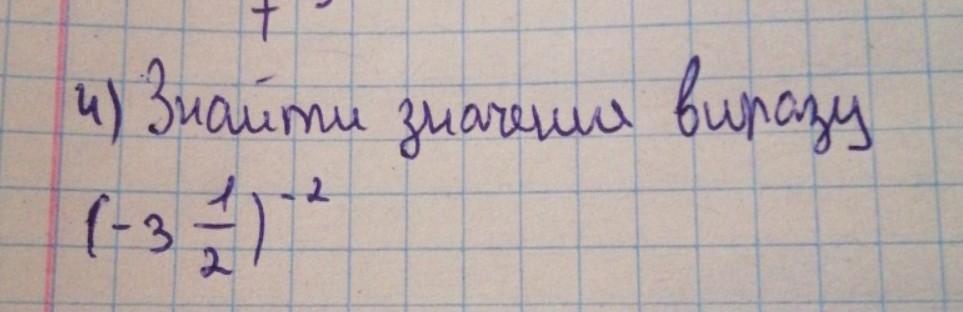 4) Знайти значення виразу
(-3 1/2)^-2